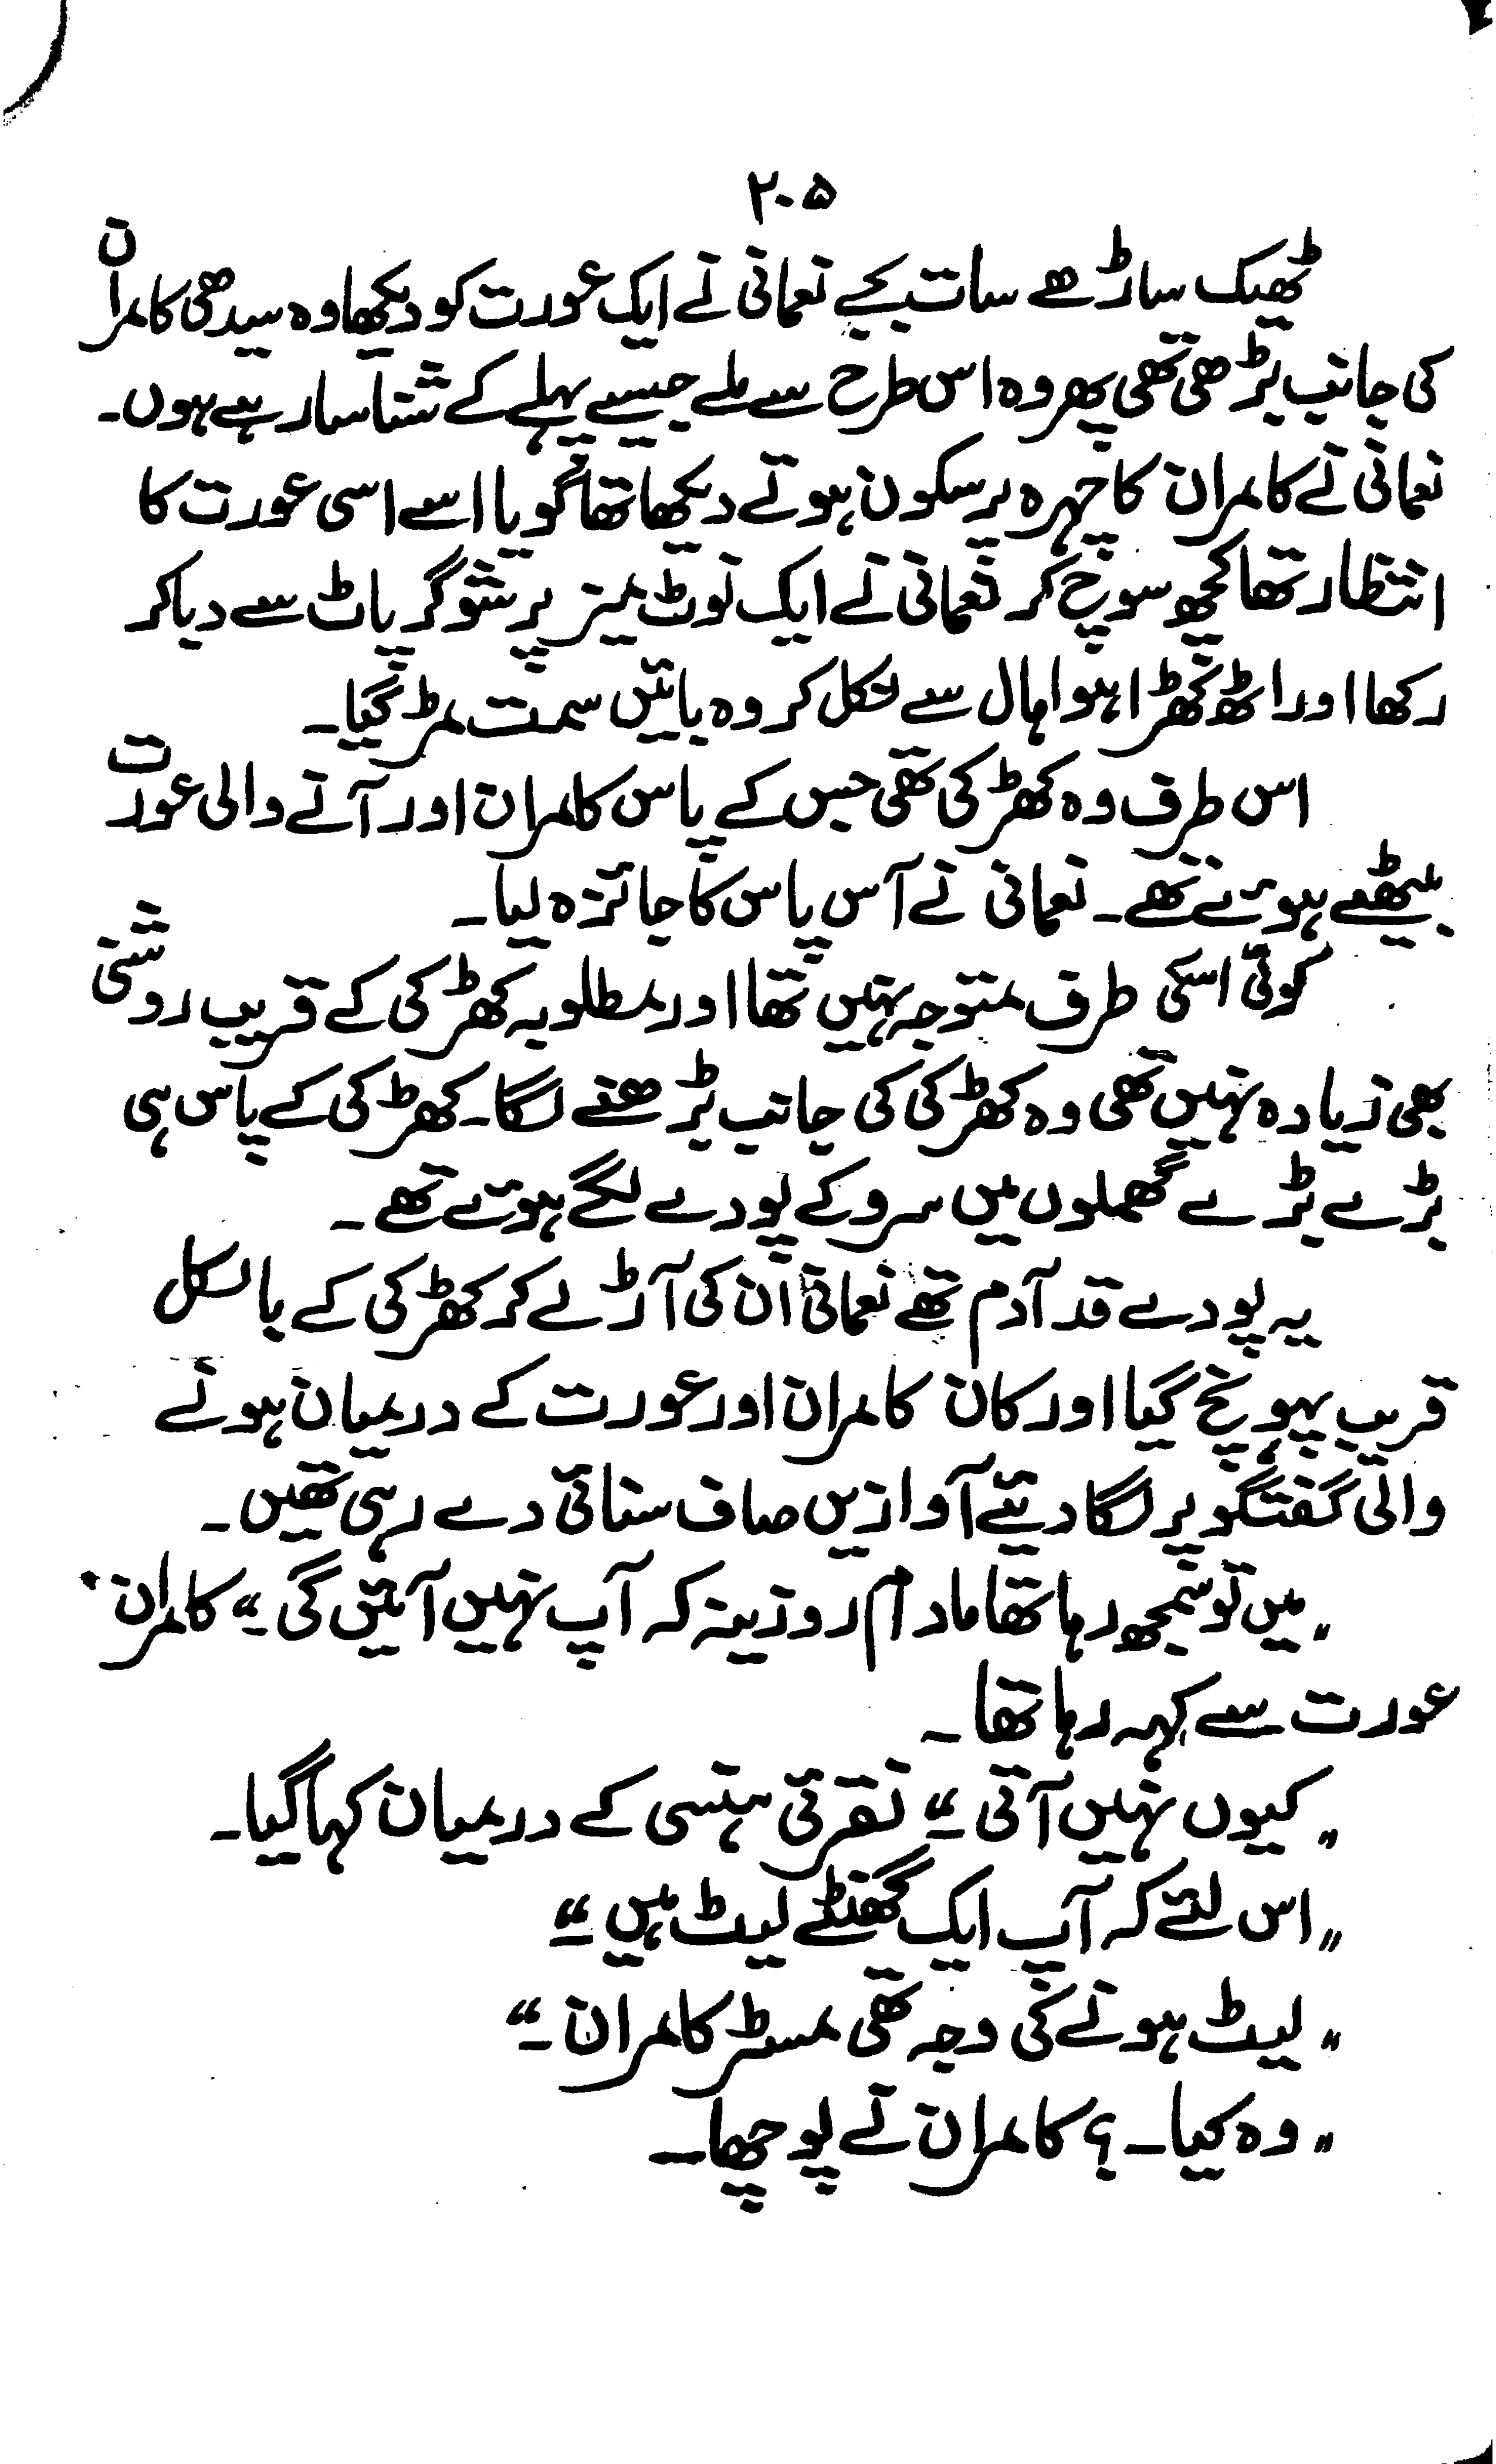 ۲۰۵
ٹھیک ساڑھے سات بجے نعمانی نے ایک عورت کو دیکھا وہ سیدھی کامران
کی جانب بڑھی تھی پھر وہ اس طرح سے ملے جیسے پہلے کے شناسا رہے ہوں۔
نعمانی نے کامران کا چہرہ پرسکون ہوتے دیکھا تھا گویا اسے اسی عورت کا
انتظار تھا کچھ سوچ کر نعمانی نے ایک نوٹ میز پر شوگر پاٹ سے دبا کر
رکھا اور اٹھ کھڑا ہوا ہال سے نکل کر وہ بائیں سمت مڑ گیا۔
اس طرف وہ کھڑکی تھی جس کے پاس کامران اور آنے والی عورت
بیٹھے ہوئے تھے۔ نعمانی نے آس پاس کا جائزہ لیا۔
کوئی اسکی طرف متوجہ نہیں تھا اور مطلوبہ کھڑکی کے قریب روشنی
بھی زیادہ نہیں تھی وہ کھڑکی کی جانب بڑھنے لگا۔ کھڑکی کے پاس ہی
بڑے بڑے گھملوں میں سرو کے پودے لگے ہوئے تھے۔
یہ پودے قد آدم تھے نعمانی ان کی آڑ لے کر کھڑکی کے بالکل
قریب پہونچ گیا اور کان کامران اور عورت کے درمیان ہونے
والی گفتگو پر لگا دیئے آوازیں صاف سنائی دے رہی تھیں۔
"میں تو سمجھ رہا تھا مادام روزینہ کہ آپ نہیں آئیں گی۔" کامران
عورت سے کہہ رہا تھا۔
"کیوں نہیں آتی۔" نقرئی ہنسی کے درمیان کہا گیا۔
"اس لئے کہ آپ ایک گھنٹے لیٹ ہیں۔"
"لیٹ ہونے کی وجہ تھی مسٹر کامران۔"
"وہ کیا۔؟ کامران نے پوچھا۔